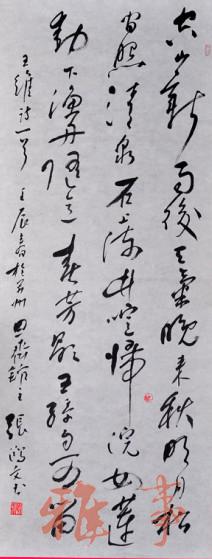 空山新雨後天氣晚來秋明月松
間照清泉石上流竹喧歸浣女蓮
動下漁舟隨意春芳歇王孫自可留
王維诗一首 壬辰春於 州 館主 張 文书
雅事